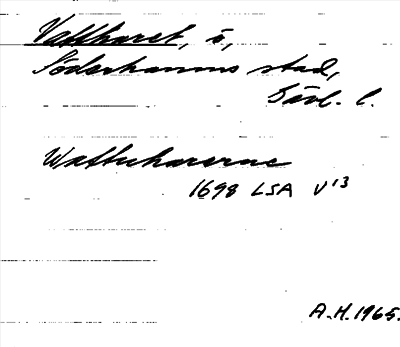 Vattharet, ö,
Söderhamns stad,
Gävl. l.
Wattuharerne
1698 LSA V 13
A.H. 1965.